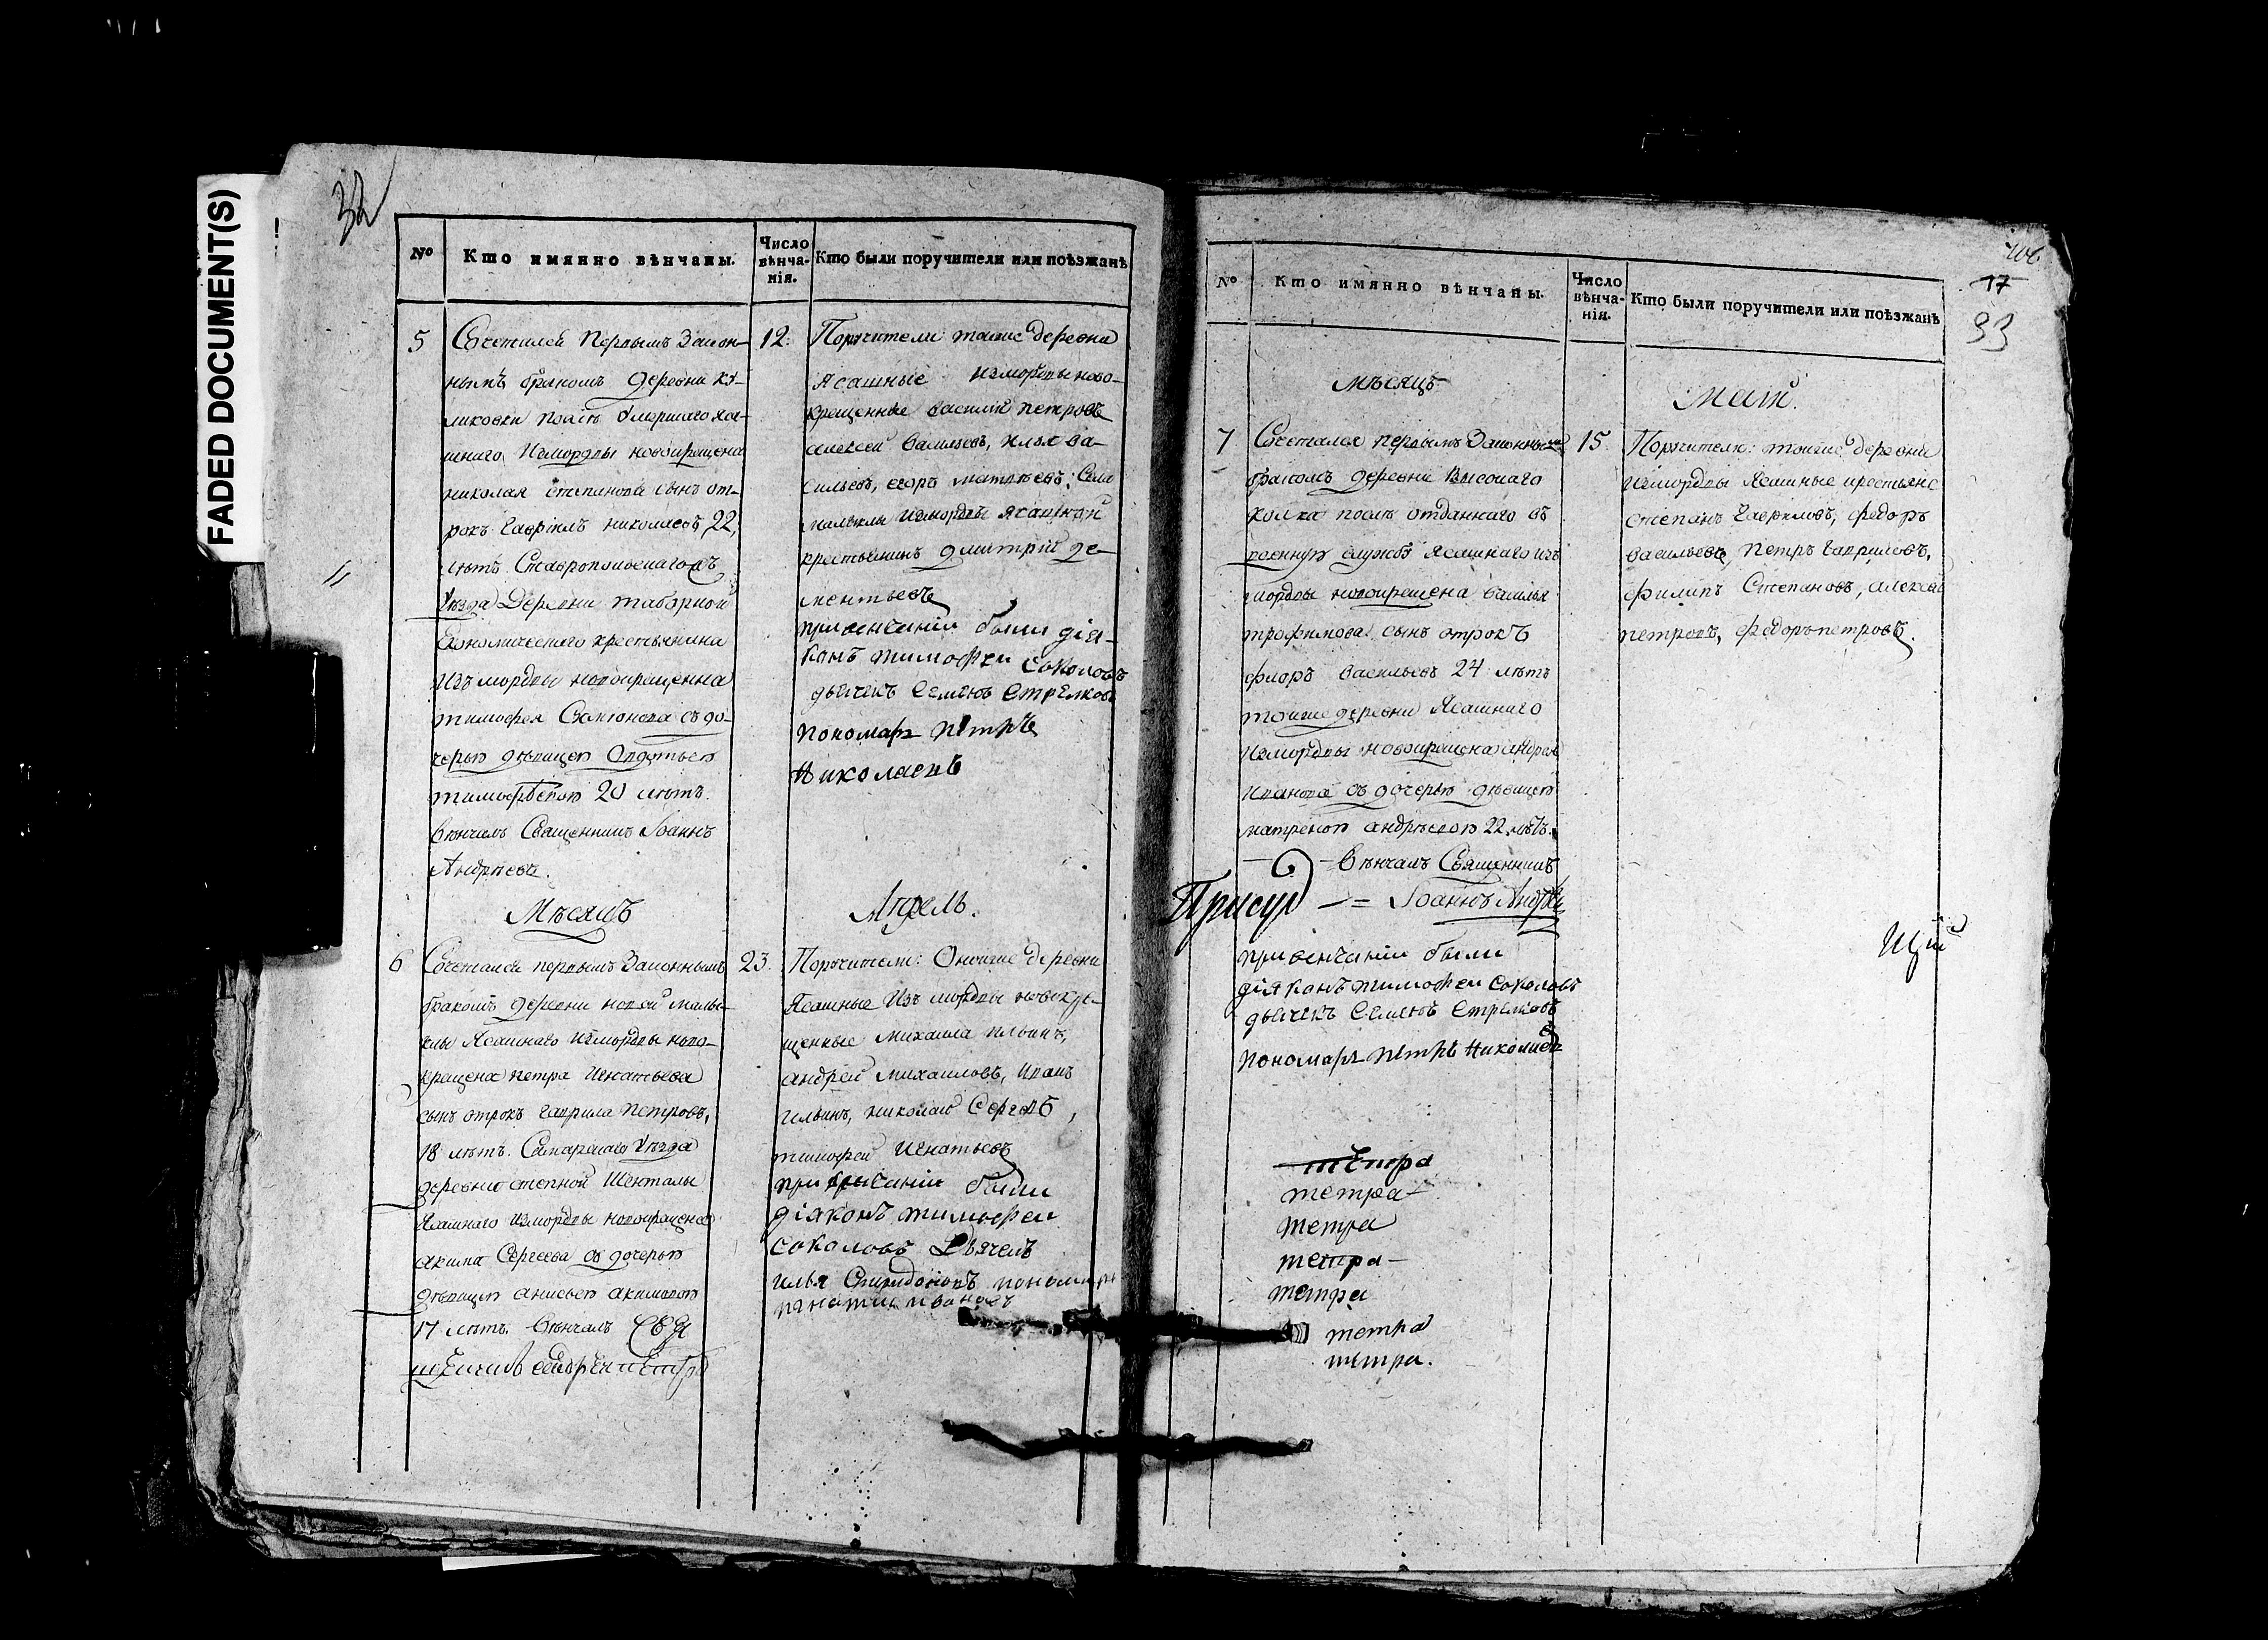 FADED DOCUMENT(S)
32
№ Кто имянно вѣнчаны. Число вѣнча-нія. Кто были поручители или поѣзжанѣ
5
Сочетался первымъ закон-
нымъ бракомъ деревни Ку-
ликовки послѣ умершаго яса-
шнаго изъ мордвы новокрещена
николая степанова сынъ от-
рокъ гаврилъ николаевъ 22,
лѣтъ. Ставропольскаго
уѣзда деревни таборной
экономическаго крестьянина
изъ мордвы новокрещенна
тимофея съ до-
черью дѣвицею
тимофѣевою 20 лѣтъ.
вѣнчалъ Священникъ Іоаннъ
Андрѣевъ.
12.
Поручители тоиже деревни
ясашные изъ мордвы ново-
крещенные василий петровъ
алексей васильевъ, илья ва-
сильевъ, егоръ матвѣевъ; села
малыклы изъ мордвы ясашной
крестьянинъ дмитрій де-
ментьевъ
при венчаніи были дія-
конъ тимофеи соколовъ
дьячекъ семенъ стрелковъ
пономарь петръ
николаевъ
Мѣсяцъ
Апрель.
6
Сочетался первымъ законнымъ
бракомъ деревни новой малы-
клы ясашнаго изъ мордвы ново-
крещена петра игнатьева
сынъ отрокъ гаврила петровъ,
18 лѣтъ. Самарскаго уѣзда
деревни степной Шенталы
ясашнаго изъ мордвы новокрещена
акима Сергеева съ дочерью
дѣвицею анисьею акимовою
17 лѣтъ. вѣнчалъ свя
23.
Поручители: Оноиже деревни
ясашные изъ мордвы новокре-
щенные михаила ильинъ,
андрей михаиловъ, иванъ
ильинъ, николаи Сергевъ,
тимофеи игнатьевъ
при венчаніи были
діяконъ тимофеи
соколовъ дьячекъ
илья Спиридоновъ пономарь
игнатии ивановъ
17
33
№ Кто имянно вѣнчаны. Число вѣнча-нія. Кто были поручители или поѣзжанѣ
мѣсяцъ
маій.
7
Сочетался первымъ законнымъ
бракомъ деревни Высокаго
колка послѣ отданнаго въ
военную службу ясашнаго изъ
мордвы новокрещена василья
трофимова сынъ отрокъ
флоръ васильевъ 24 лѣтъ
тоиже деревни ясашнаго
изъ мордвы новокрещена андрея
иванова съ дочерью дѣвицею
матреною андрѣевою 22 лѣтъ.
вѣнчалъ Священникъ
Присуд Іоаннъ Андрѣевъ
при венчаніи были
діяконъ тимофеи соколовъ
дьячекъ семенъ стрелковъ
пономарь петръ николаевъ
15.
Поручители: тоиже деревни
изъ мордвы ясашные крестьяне
степанъ гавриловъ, федоръ
васильевъ, петръ гавриловъ,
филипъ Степановъ, алексеи
петровъ, федоръ петровъ.
щій
тетра
тетра
тетра
тетра
тетра
тетра
тетра.